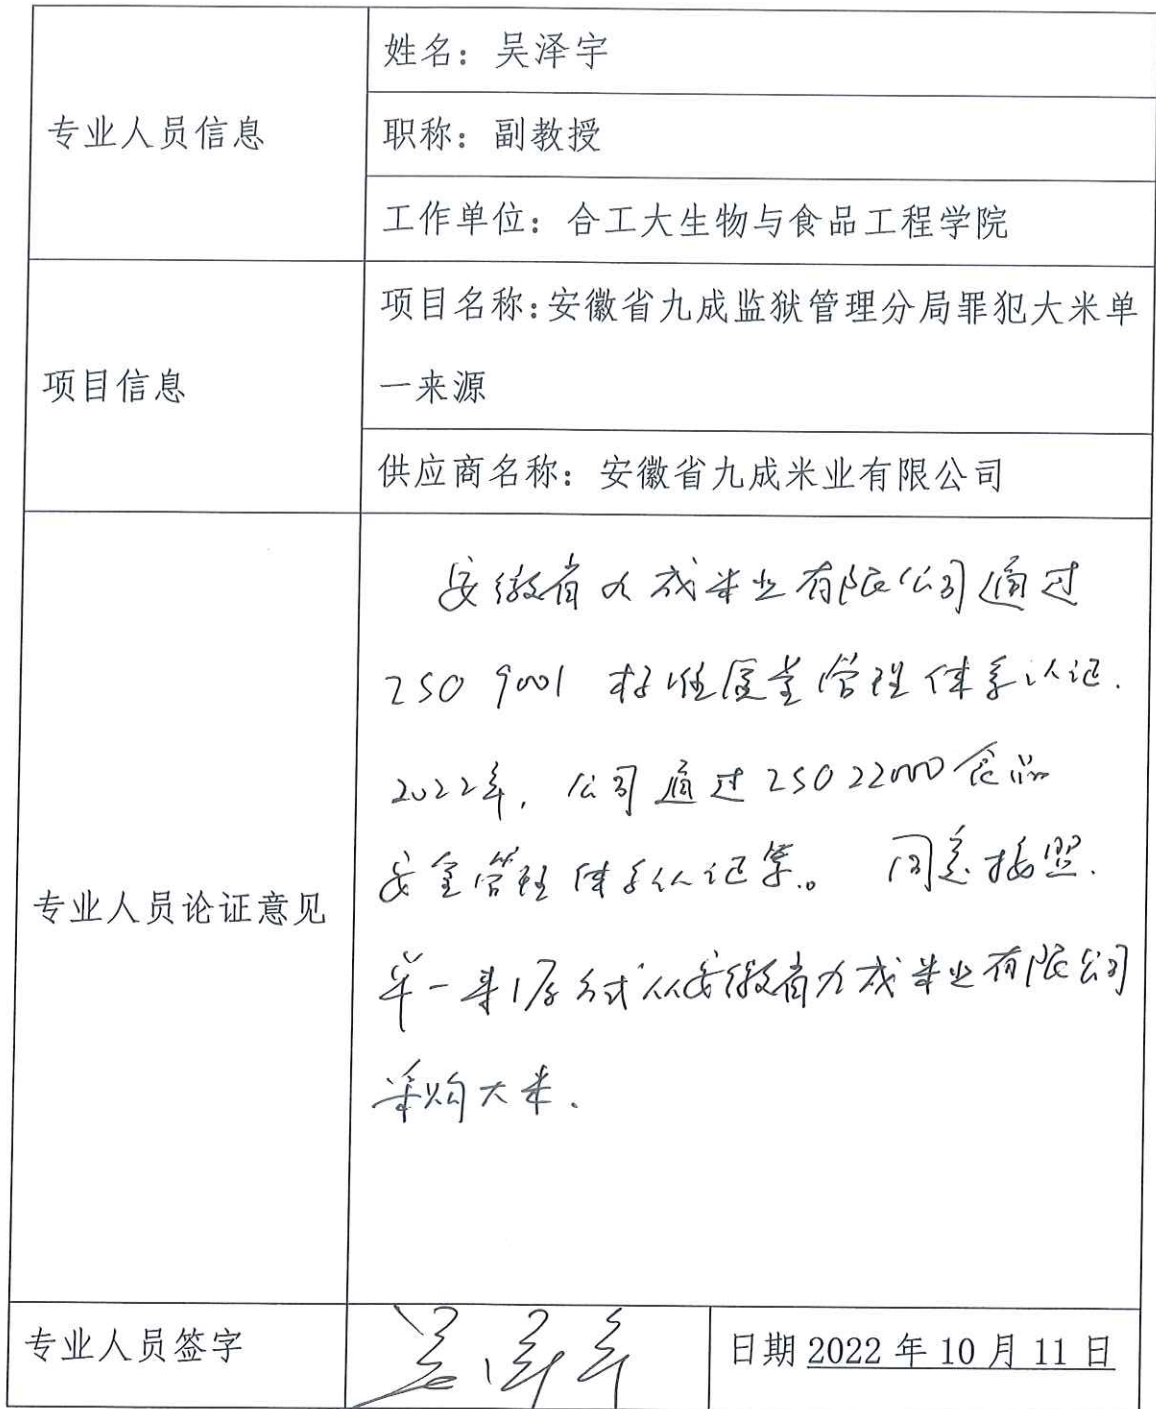 专业人员信息
姓名：吴泽宇
职称：副教授
工作单位：合工大生物与食品工程学院
项目信息
项目名称:安徽省九成监狱管理分局罪犯大米单
一来源
供应商名称：安徽省九成米业有限公司
专业人员论证意见
安徽省九成米业有限公司通过
ISO 9001 标准质量管理体系认证.
2022年, 公司通过ISO22000食品
安全管理体系认证等。 同意按照.
单一来源方式从安徽省九成米业有限公司
采购大米.
专业人员签字
吴泽宇
日期 2022 年 10 月 11 日